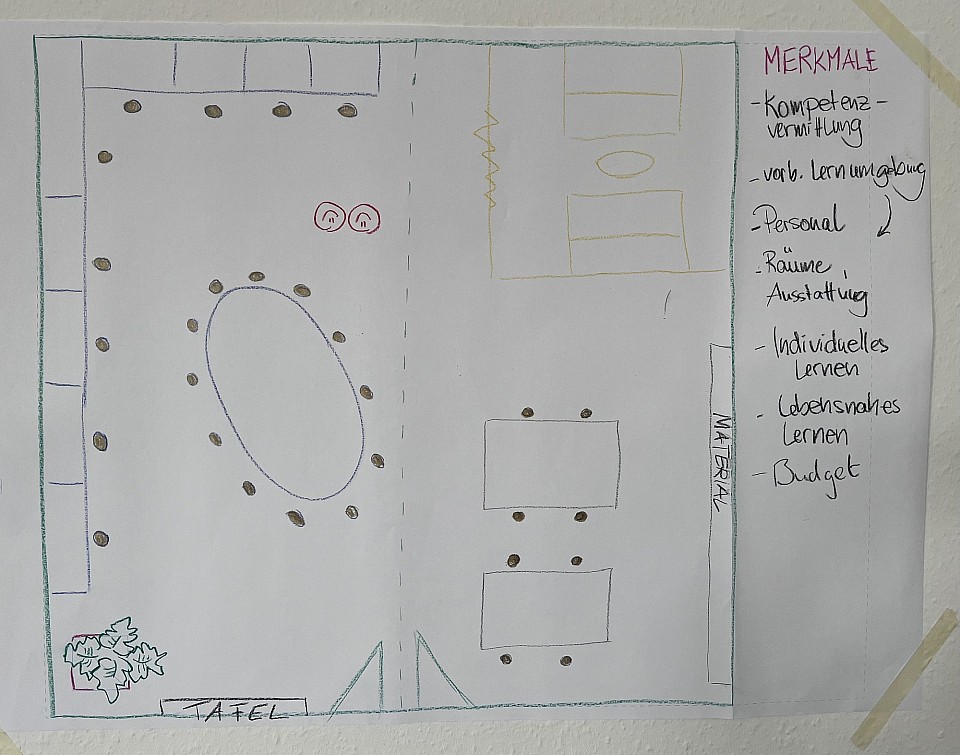 MERKMALE
- Kompetenz-
vermittlung
- vorb. Lernumgebung
- Personal
- Räume,
Ausstattung
- Individuelles
Lernen
- Lebensnahes
Lernen
- Budget
MATERIAL
TAFEL